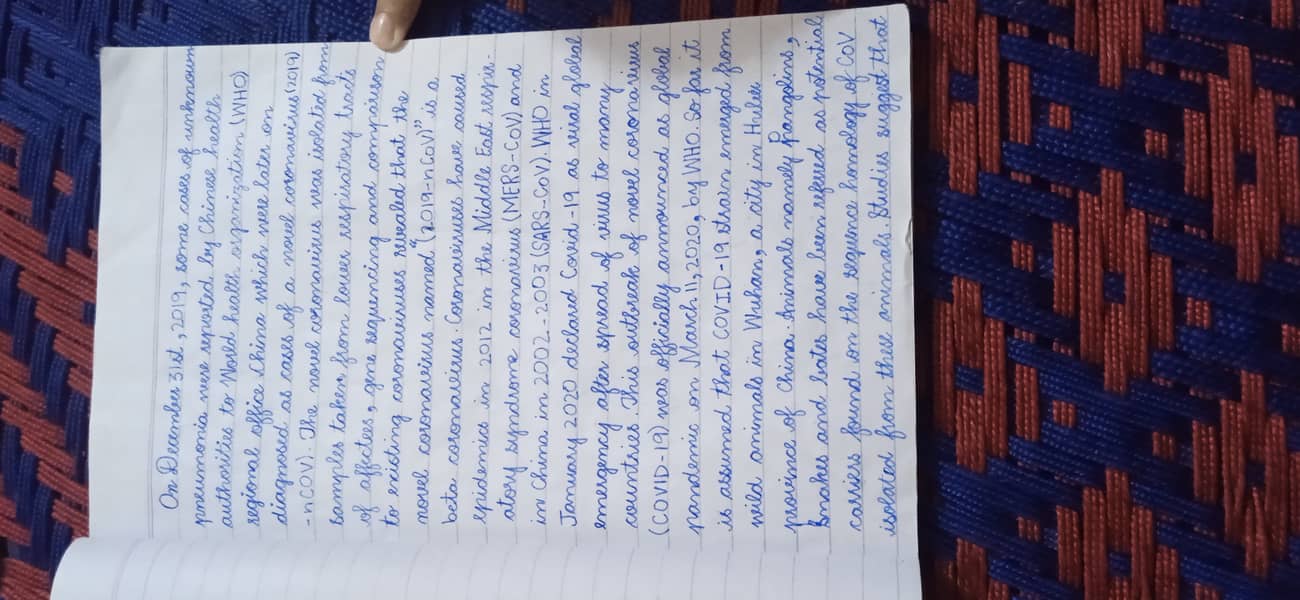 On December 31st, 2019, some cases of unknown
pneumonia were reported by Chinese health
authorities to World health organization (WHO)
regional office China which were later on
diagnosed as cases of a novel coronavirus (2019)
-nCOV). The novel coronavirus was isolated from
samples taken from lower respiratory tracts
of affectees, gene sequencing and comparison
to existing coronaviruses revealed that the
novel coronavirus named "(2019-nCoV)" is a
beta coronavirus. Coronaviruses have caused
epidemics in 2012 in the Middle East respir-
atory syndrome coronavirus (MERS-CoV) and
in China in 2002-2003 (SARS-CoV). WHO in
January 2020 declared Covid-19 as viral global
emergency after spread of virus to many
countries. This outbreak of novel coronavirus
(COVID-19) was officially announced as global
pandemic on March 11, 2020, by WHO. So far it
is assumed that COVID-19 strain emerged from
wild animals in Wuhan, a city in Hubei
province of China. Animals namely Pangolins,
snakes and bats have been referred as potential
carriers found on the sequence homology of CoV
isolated from these animals. Studies suggest that